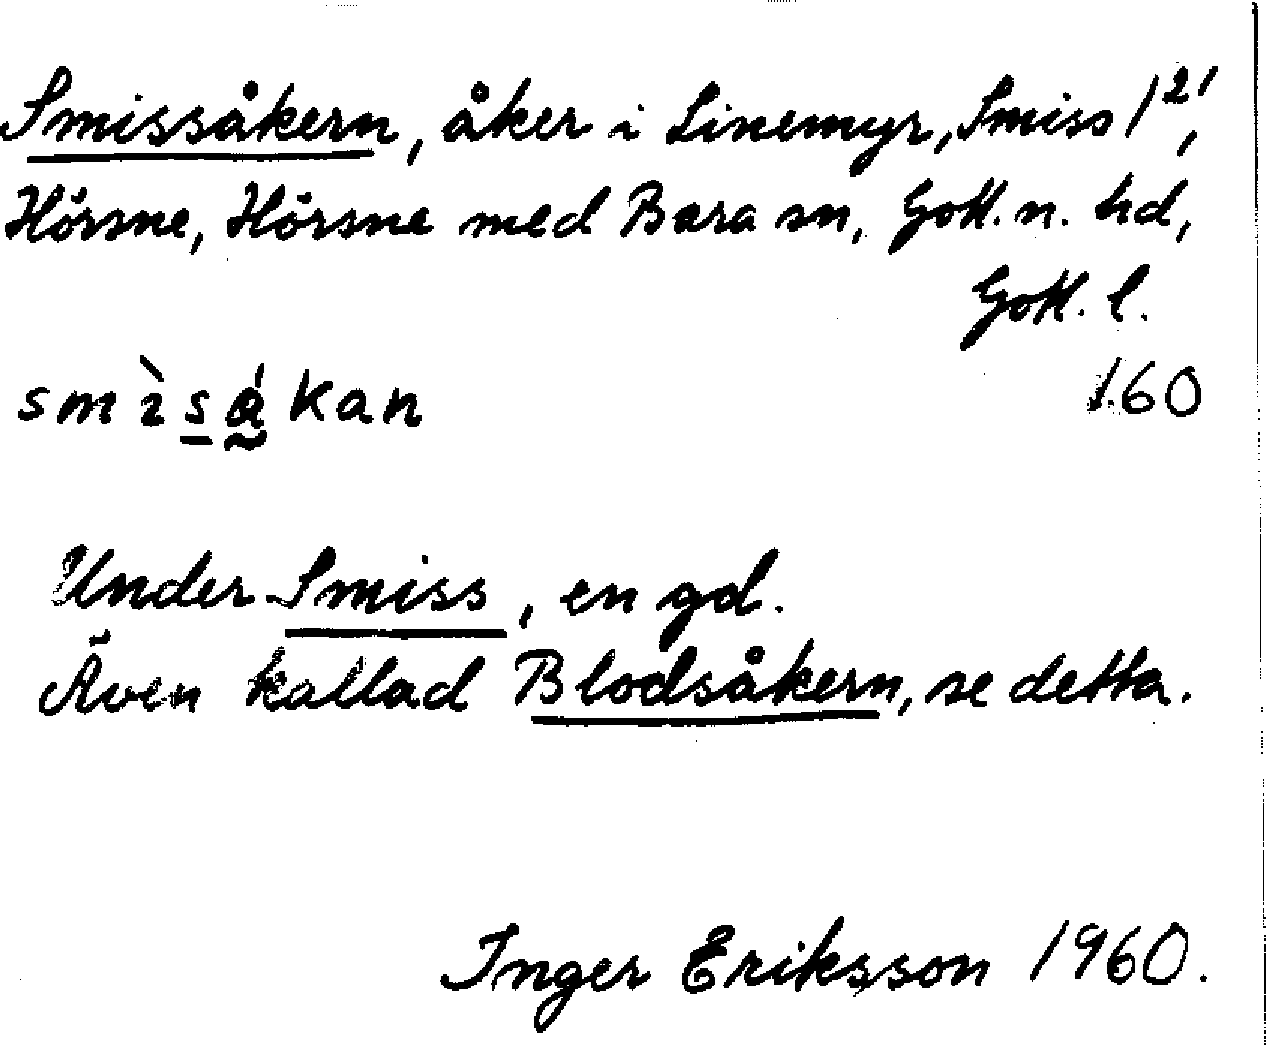 Smissåkern, åker i Linemyr, Smiss 1²ʹ,
Hörsne, Hörsne med Bara sn, Gotl. n. hd,
Gotl. l.
smı̀sá̰kan 160
Under Smiss, en gd.
Även kallad Blodsåkern, se detta.
Inger Eriksson 1960.